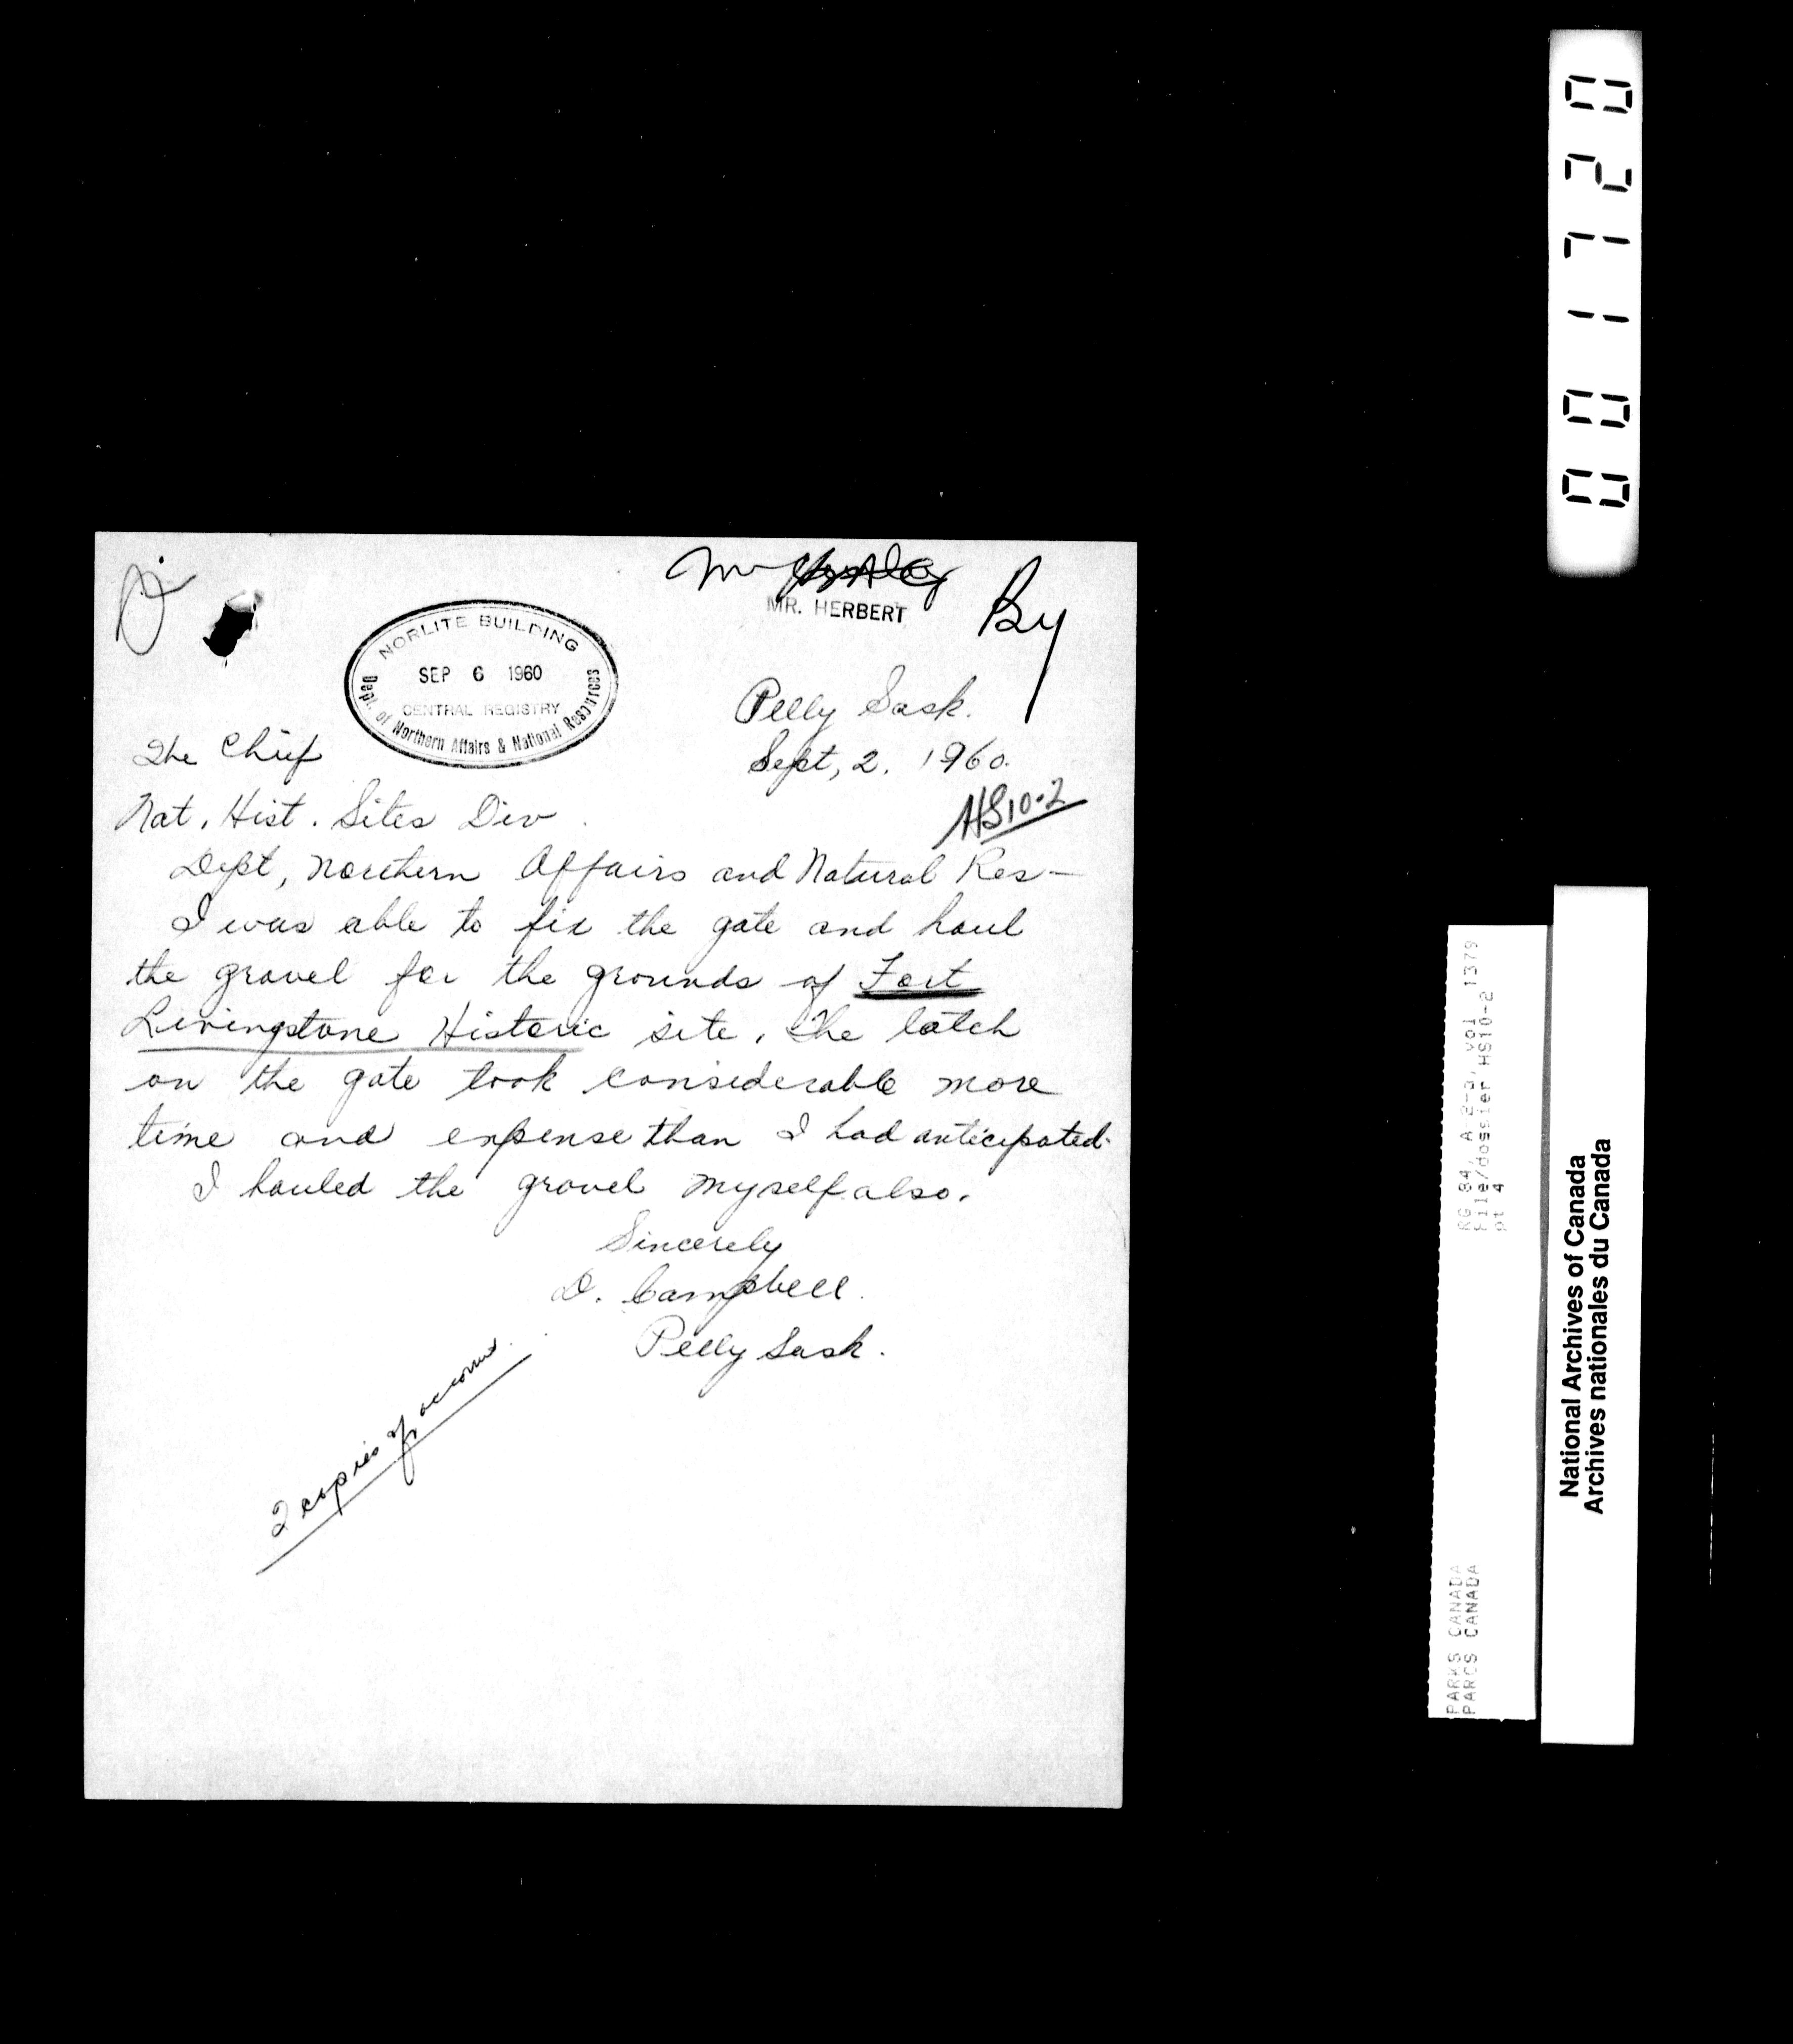 Mr
MR. HERBERT
By
NORLITE BUILDING
SEP 6 1960
CENTRAL REGISTRY
Dept. of Northern Affairs & National Resources
Pelly Sask.
Sept, 2. 1960.
HS10-2
The Chief
Nat. Hist. Sites Div.
Dept, Northern Affairs and Natural Res-
I was able to fix the gate and haul
the gravel for the grounds of Fort
Livingstone Historic site. The latch
on the gate took considerable more
time and expense than I had anticipated.
I hauled the gravel myself also.
Sincerely
D. Campbell.
Pelly Sask.
2 copies of account
001720
RG 84, A-2-a, vol. 1379
File/dossier HS10-2
pt 4
PARKS CANADA
PARCS CANADA
National Archives of Canada
Archives nationales du Canada